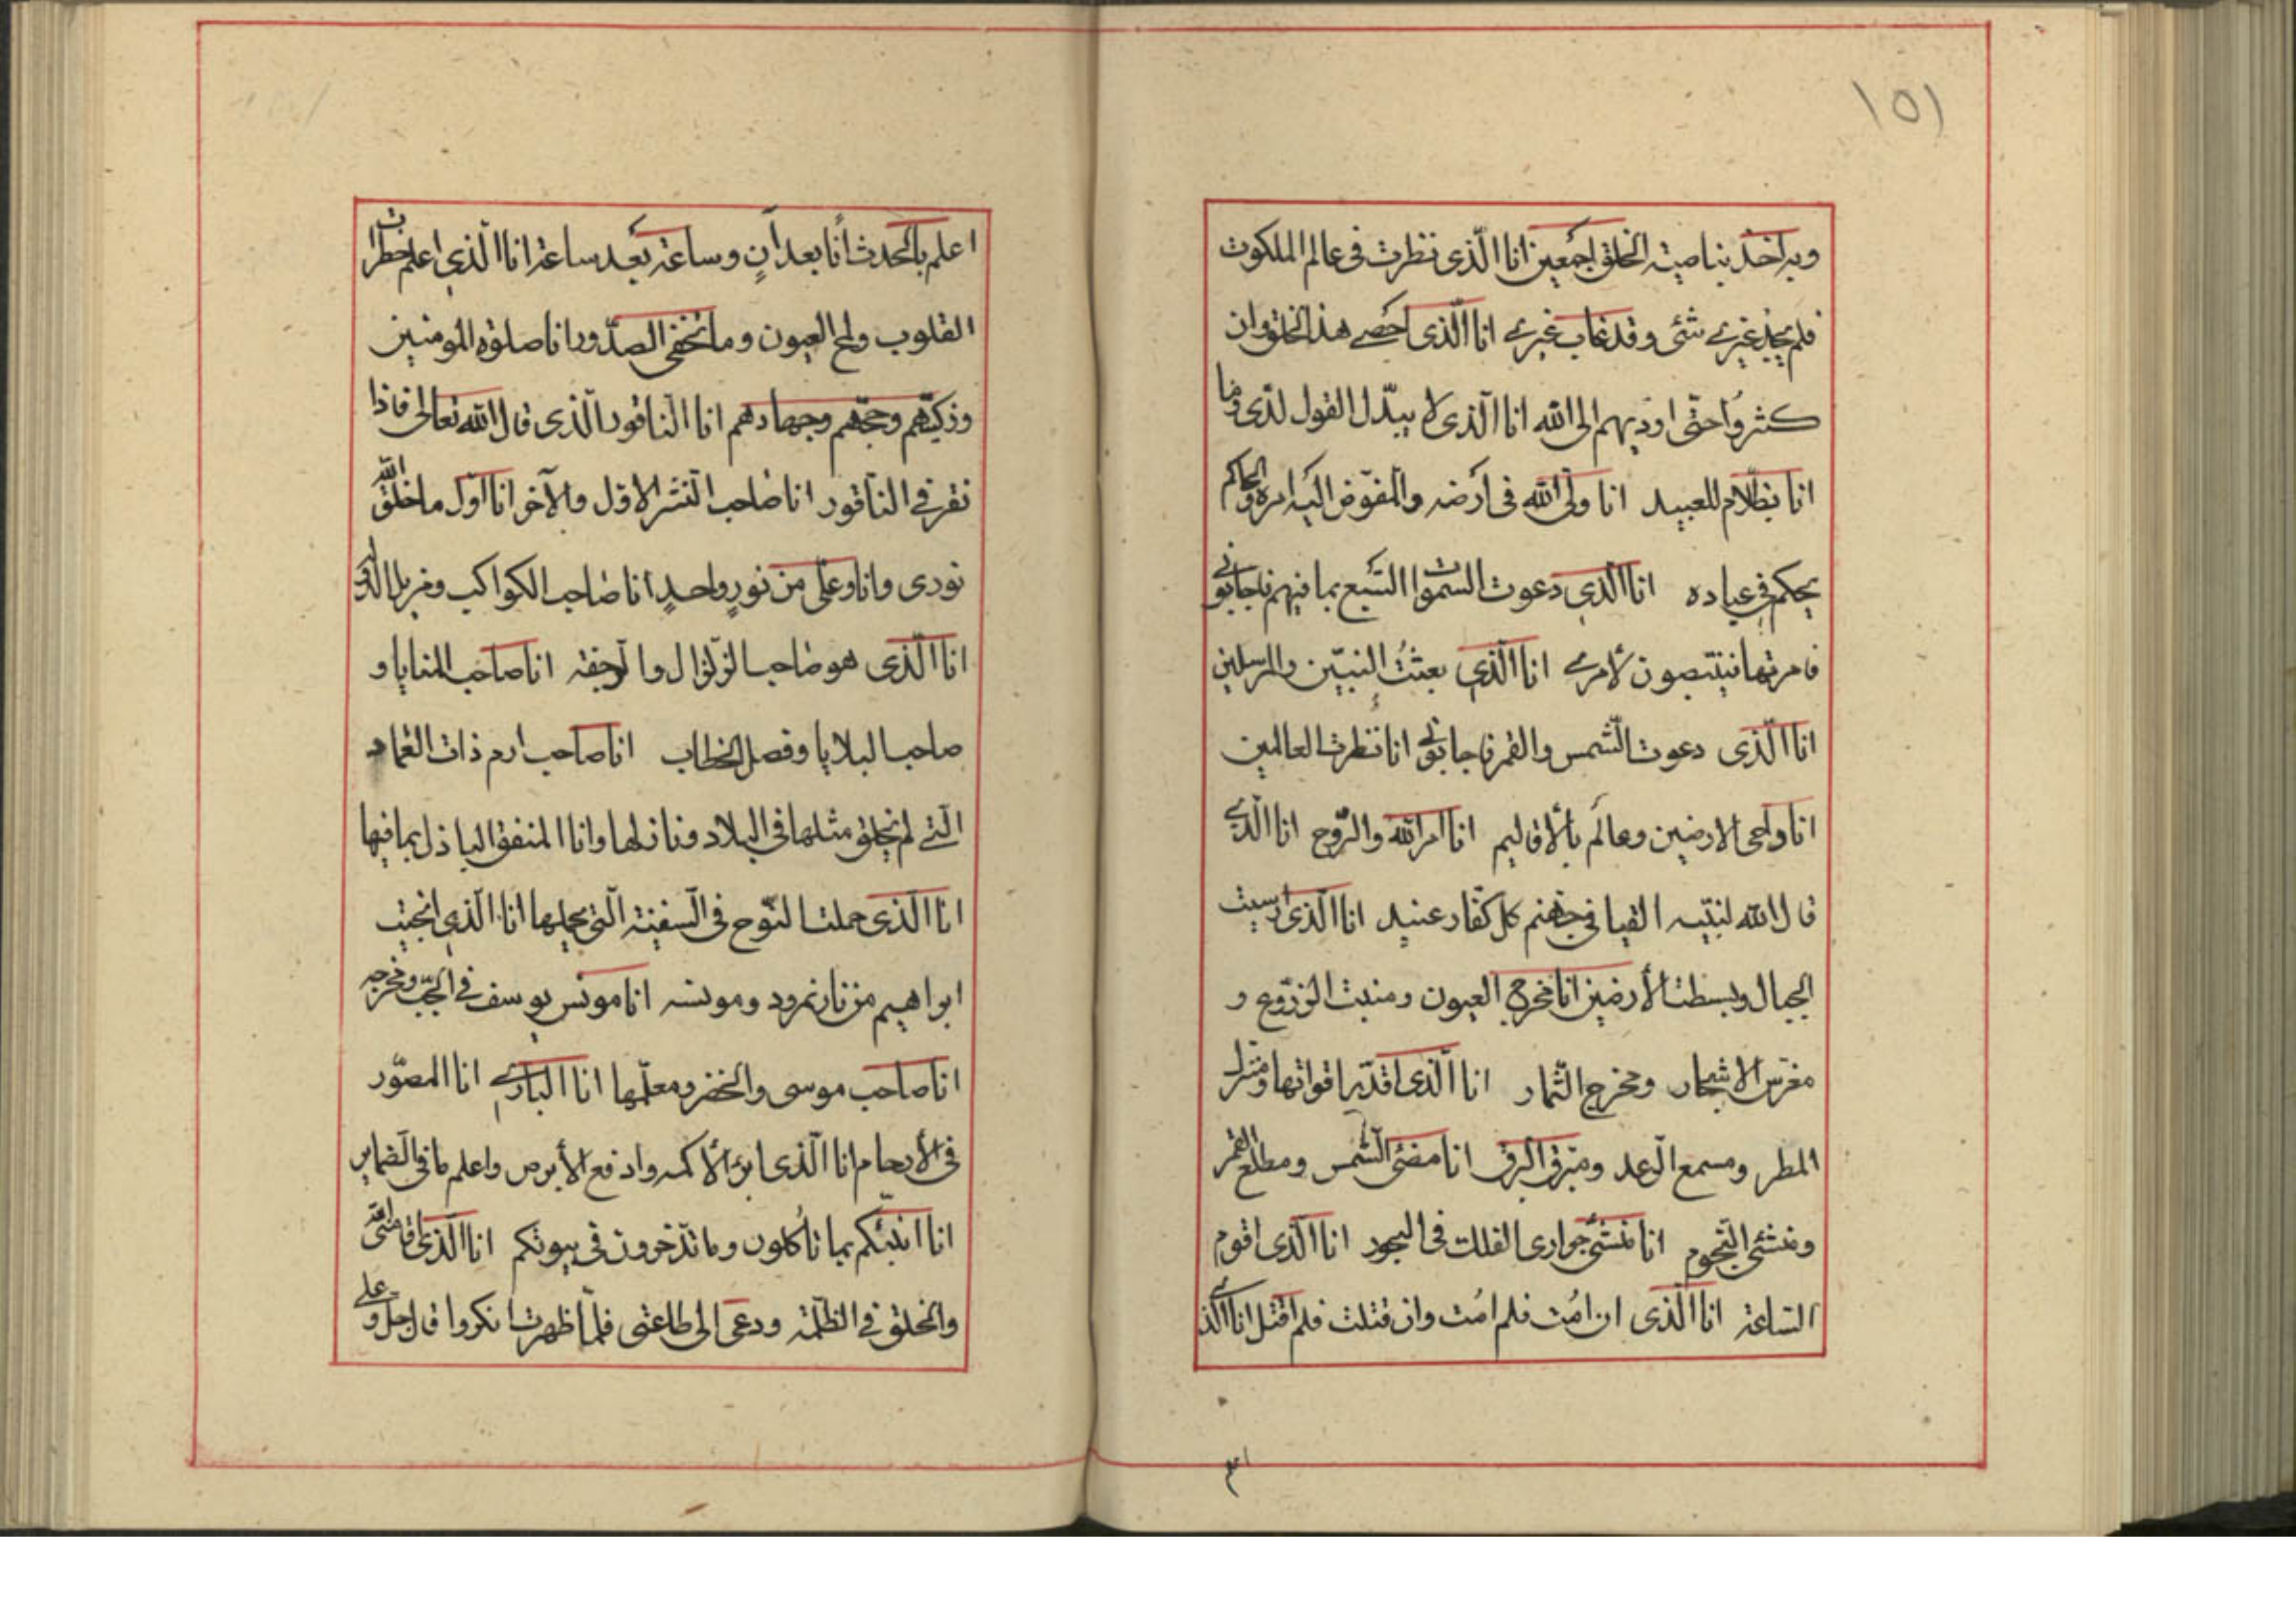 ١٥١
وبه اخذ بناصیة الخلق اجمعین انا الّذی نظرت فی عالم الملکوت
فلم یجد غیرے شئی وقد غاب غیرے انا الّذی احصے هذا الخلق وان
کثروا حتّی اودیهم الی الله انا الّذی لا یبدّل القول لدّی وما
انا بظلّام للعبید انا ولی الله فی ارضه والمفوّض الیه امره والحاکم
یحکم فی عباده انا الّذی دعوت السّموات السّبع بما فیهم فاجابونی
فامرتها فینتصبون لأمرے انا الّذی بعثتُ النبیّن والمرسلین
انا الّذی دعوت الشّمس والقمر فاجابونی انا نظرت العالمین
انا داحی الارضین وعالَم بألاقالیم انا امر الله والرّوح انا الّذے
قال الله لنبیّه القیا فی جهنم کل کفّار عنید انا الّذی ارسیت
الجبال وبسطت الأرضین انا مخرج العیون ومنبت الزرّوع و
مغرّس الاشجار ومخرج الثّمار انا الّذی اقدّر اقواتها ومنزل
المطر ومسمع الرّعد ومبرق البرق انا مضئی الشّمس ومطلع القمر
ومنشئی النّجوم انا منشئی جواری الفلک فی البحور انا الّذی اقوم
السّاعة انا الّذی ان امُت فلم امُت وان قتلت فلم اقتل انا الّذے
اعلم
اعلم بالحدث اٰنًا بعد اٰنٍ وساعة بعد ساعة انا الّذی اعلم خطرات
القلوب ولمح العیون وما تخفی الصدّور انا صلوة المومنین
وزکیٰتهم وحجّهم وجهادهم انا النّاقور الّذی قال الله تعالی فاذا
نقر فی الناقور انا صاحب النّشر الاوّل والآخر انا اوّل ما خلق الله
نوری وانا وعلّی من نورٍ واحدٍ انا صاحب الکواکب ومزیل الدولة
انا الّذی هو صاحب الزّلزال والرّجفة انا صاحب المنایا و
صاحب البلایا وفصل الخطاب انا صاحب ارم ذات العماد
الّتے لم یخلق مثلها فی البلاد ونازلها وانا المنفق الباذل بما فیها
انا الّذی حملت النّوح فی السّفینة الّتی یحملها انا الّذی انجیت
ابراهیم من نار نمرود ومونسه انا مونس یوسف فی الجبّ ومخرجه
انا صاحب موسی والخضر ومعلّمها انا البارےء انا المصوّر
فی الأرحام انا الّذی ابرء الأکمه وادفع الأبرص واعلم ما فی الضّمایر
انا انبّئکم بما تاُکلون وما تدّخرون فی بیوتکم انا الّذی اقامنی الله
والخلق فی الظلّمة ودعی الی طاعتی فلمّا ظهرت انکروا قال جل وعلے